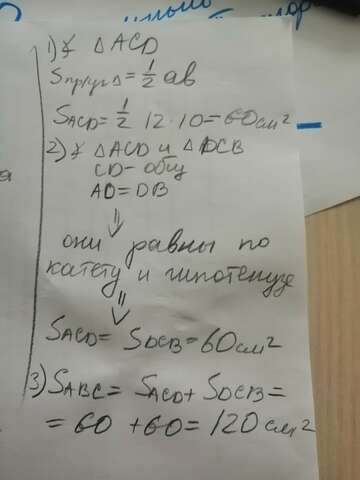 1) ∡ △ACD
Sпрүг△ = 1/2 ab
SACD = 1/2 12 · 10 = 60 см²
2) ∡ △ACD и △DCB
CD – общ
AD = DB
⇓
они равны по
катету и гипотенузе
⇓
SACD = SDCB = 60 см²
3) SABC = SACD + SDCB =
= 60 + 60 = 120 см²